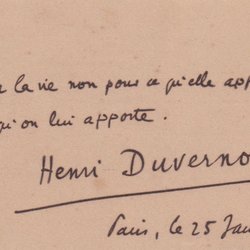 la vie non pour ce qu'elle app
qu'on lui apporte.
Henri Duverno
Paris, le 25 Jan